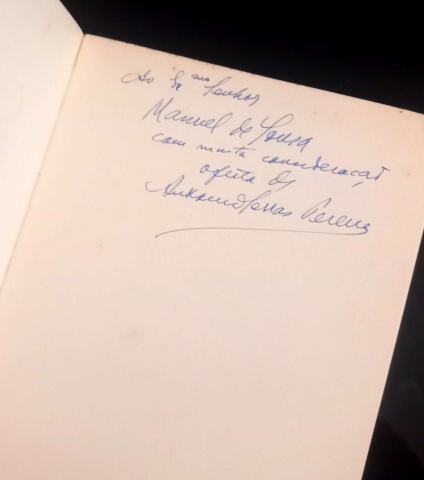 Ao Ex.mo Senhor
Manuel de Sousa
com muita consideração
oferta de
Antonio Pereira